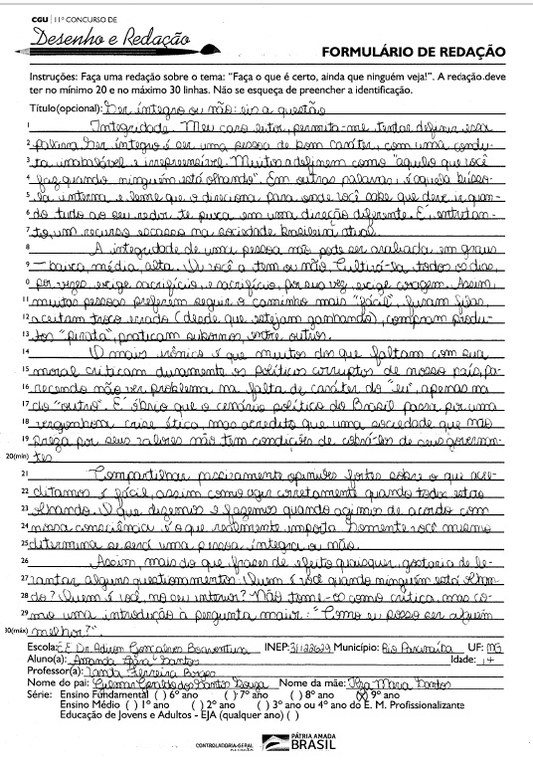 CGU | 11º CONCURSO DE
Desenho e Redação
FORMULÁRIO DE REDAÇÃO
Instruções: Faça uma redação sobre o tema: "Faça o que é certo, ainda que ninguém veja!". A redação deve
ter no mínimo 20 e no máximo 30 linhas. Não se esqueça de preencher a identificação.
Título(opcional): Ser íntegro ou não: eis a questão
1 Integridade. Meu caro leitor, permita-me tentar definir essa
2 palavra. Ser íntegro é ser uma pessoa de bom caráter, com uma condu-
3 ta inabalável e irrepreensível. Muitos a definem como "aquilo que você
4 faz quando ninguém está olhando". Em outras palavras é aquela bússo-
5 la interna e leme que o direciona para onde você sabe que deve ir quan-
6 do tudo ao seu redor te puxa em uma direção diferente. É, entretan-
7 to, um recurso escasso na sociedade brasileira atual.
8 A integridade de uma pessoa não pode ser avaliada em graus
9 - baixa, média, alta. Ou você a tem ou não. Cultivá-la, todos os dias,
0 por vezes exige sacrifício, e sacrifício, por sua vez, exige coragem. Assim,
11 muitas pessoas preferem seguir o caminho mais "fácil", furam filas,
12 aceitam troco errado (desde que estejam ganhando), compram produ-
13 tos "pirata", praticam subornos, entre outros.
14 O mais irônico é que muitos dos que faltam com sua
15 moral criticam duramente os políticos corruptos de nosso país, pa-
16 recendo não ver problema na falta de caráter do "eu", apenas na
17 do "outro". É óbvio que o cenário político do Brasil passa por uma
18 vergonhosa crise ética, mas acredito que uma sociedade que não
19 preza por seus valores não tem condições de cobrá-los de seus governan-
20(min) tes.
21 Compartilhar passivamente opiniões fortes sobre o que acre-
22 ditamos é fácil, assim como agir corretamente quando todos estão
23 olhando. O que dizemos e fazemos quando agimos de acordo com
24 nossa consciência é o que realmente importa. Somente você mesmo
25 determina se será uma pessoa íntegra ou não.
26 Assim, mais do que frases de efeito quaisquer, gostaria de le-
27 vantar alguns questionamentos: Quem é você quando ninguém está olhan-
28 do? Quem é você, no seu interior? Não tome-os como crítica, mas co-
29 mo uma introdução à pergunta maior: "Como eu posso ser alguém
30(máx) melhor?".
Escola: E.E. Dr. Adiron Gonçalves Boaventura INEP: 31122629 Município: Rio Paranaíba UF: MG
Aluno(a): Amanda Santos Idade: 14
Professor(a): Ferreira Borges
Nome do pai: Geraldo dos Santos Sousa Nome da mãe: Maria Santos
Série: Ensino Fundamental ( ) 6º ano ( ) 7º ano ( ) 8º ano (X) 9º ano
Ensino Médio ( ) 1º ano ( ) 2º ano ( ) 3º ano ou 4º ano do E. M. Profissionalizante
Educação de Jovens e Adultos - EJA (qualquer ano) ( )
CONTROLADORIA-GERAL
DA UNIÃO
PÁTRIA AMADA
BRASIL